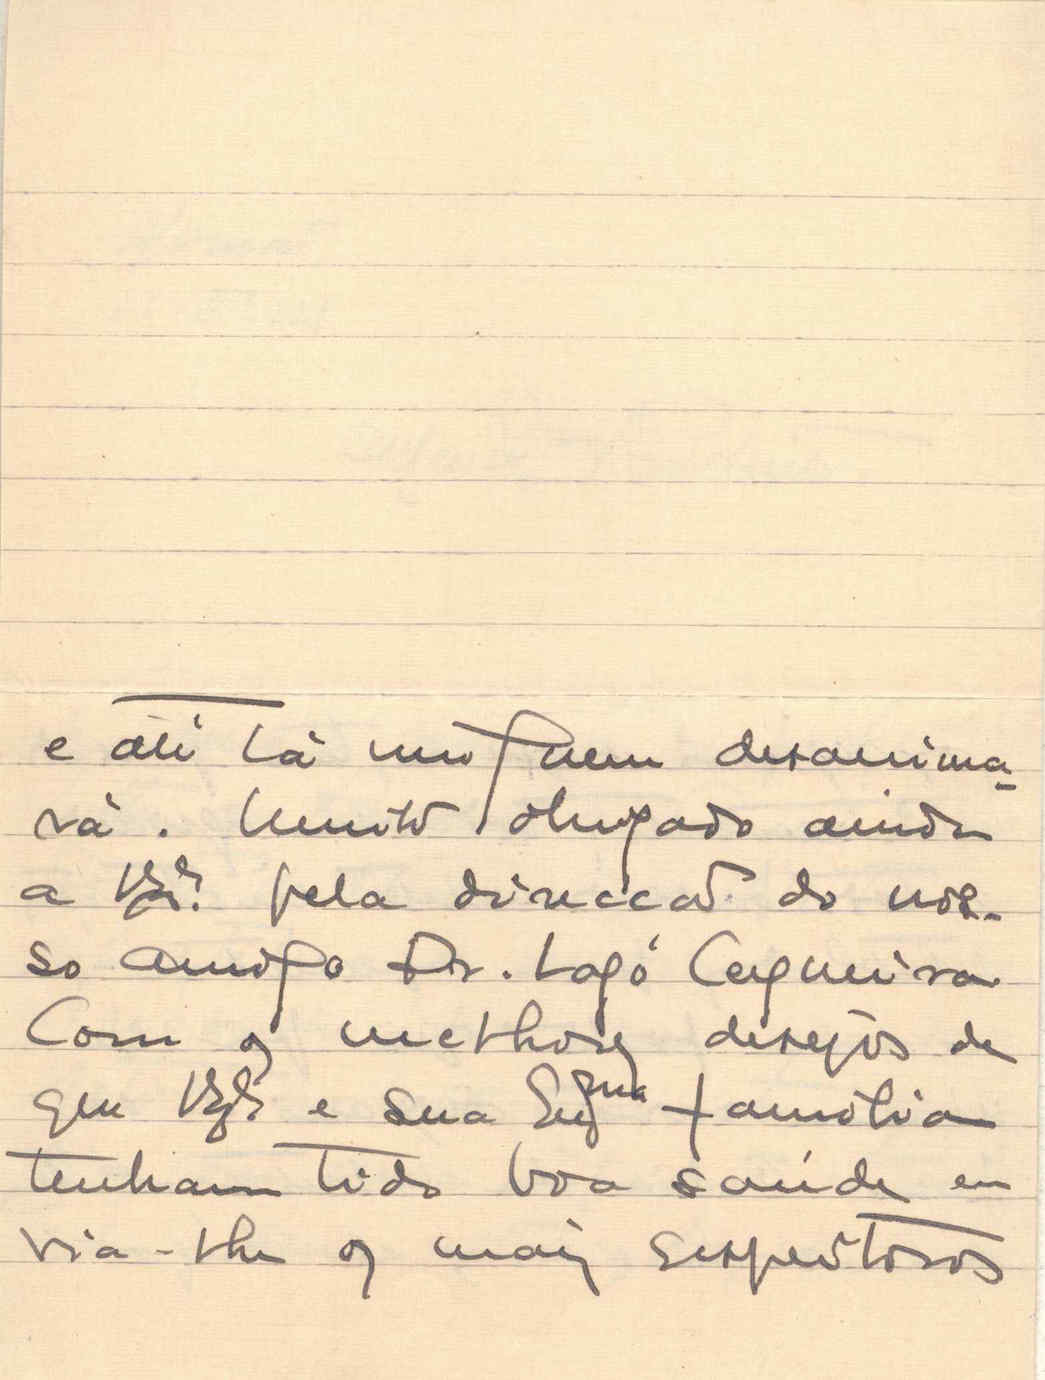 e até lá ninguem desanima-
rá. Muito obrigado ainda
a V. Exª. pela direcção do nos-
so amigo Dr. Lago Cerqueira
Com os melhores desejos de
que V. Exª e sua Exma familia
tenham tido boa saúde en
via-lhe os mais respeitosos